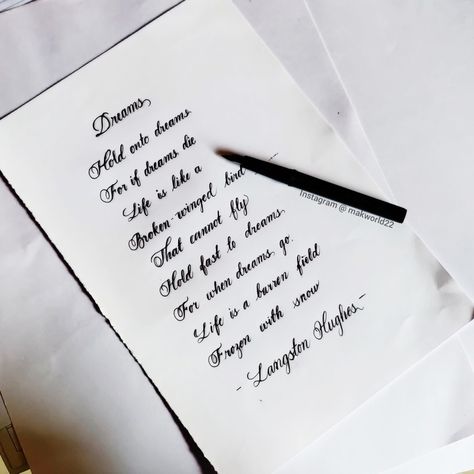 Dreams
Hold onto dreams
For if dreams die
Life is like a
Broken-winged bird
That cannot fly
Hold fast to dreams
For when dreams go
Life is a barren field
Frozen with snow
- Langston Hughes -
Instagram @ makworld22